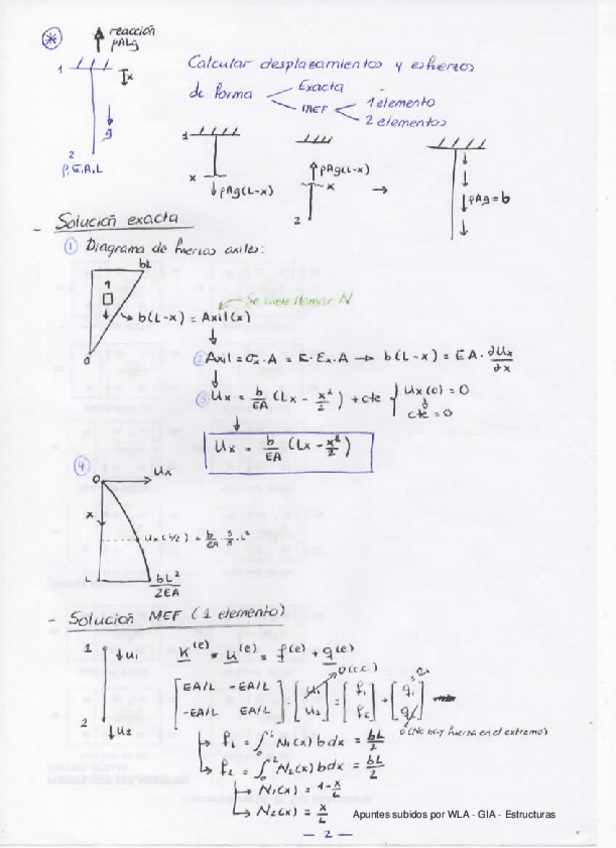 reacción
ρALg
1
x
g
2
ρ, E, A, L
Calcular desplazamientos y esfuerzos
de forma
Exacta
MEF
1 elemento
2 elementos
1
x
ρAg(L-x)
ρAg(L-x)
x
2
→
ρAg = b
- Solución exacta
① Diagrama de fuerzas axiles:
bL
0
b(L-x) = Axil(x)
Se suele llamar N
② Axil = σx·A = E·Ex·A → b(L-x) = EA·∂Ux/∂x
③ Ux = b/EA (Lx - x²/2) + cte { Ux(0) = 0
cte = 0
Ux = b/EA (Lx - x²/2)
④
0
Ux
x
Ux(L/2) = b/EA · 3/8 · L²
L
bL²/2EA
- Solución MEF (1 elemento)
1
u1
2
u2
K(e) · u(e) = f(e) + q(e)
0 (c.c.)
[EA/L -EA/L; -EA/L EA/L] · [u1; u2] = [f1; f2] + [q1; q2]
0 (No hay fuerza en el extremo)
f1 = ∫₀ᴸ N1(x) b dx = bL/2
f2 = ∫₀ᴸ N2(x) b dx = bL/2
N1(x) = 1 - x/L
N2(x) = x/L
Apuntes subidos por WLA - GIA - Estructuras
- 2 -